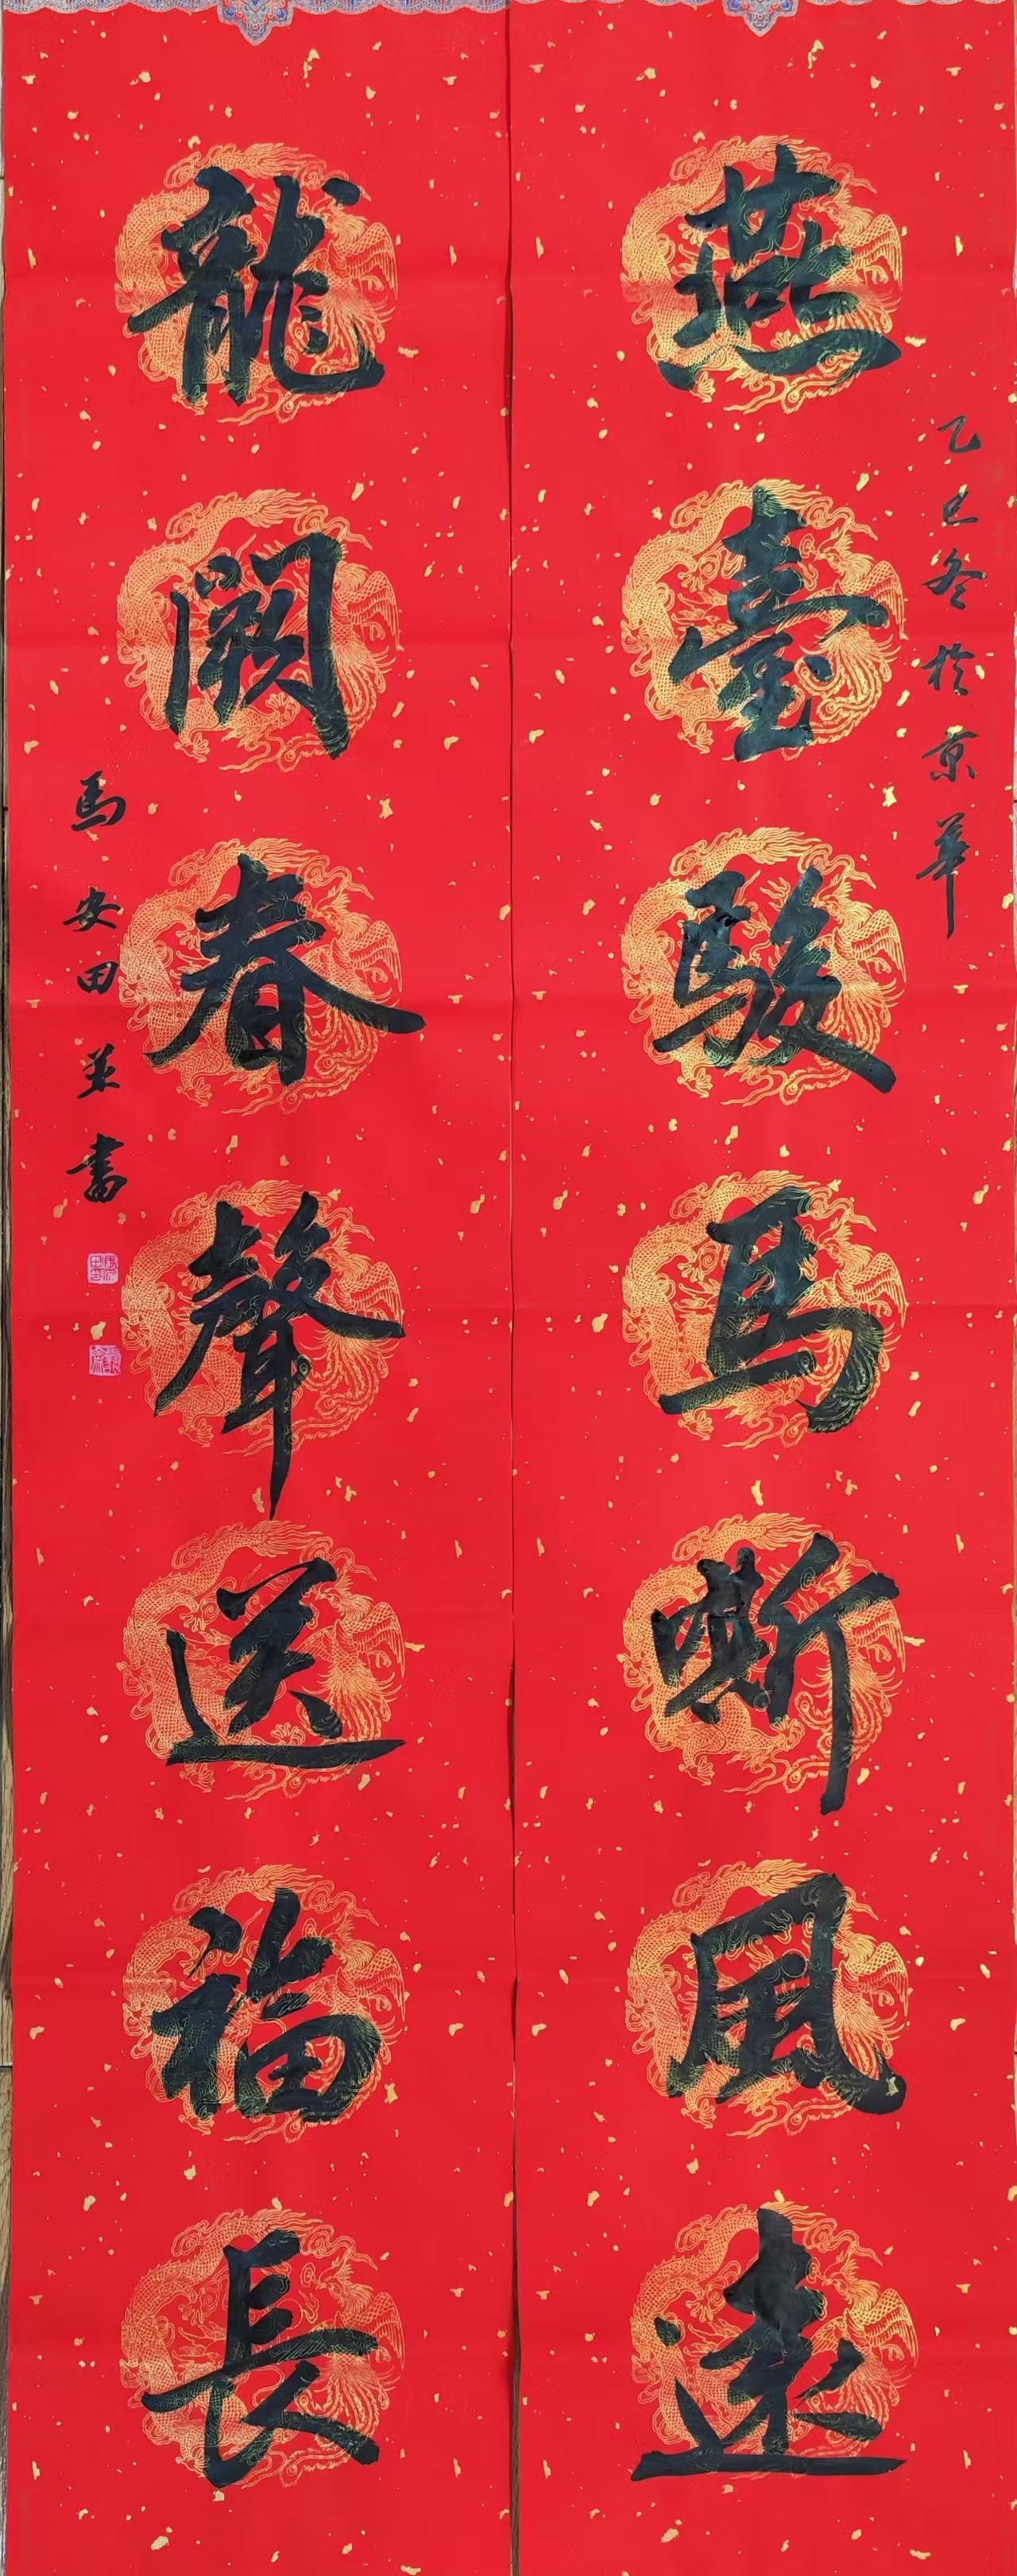 燕臺駿馬嘶風遠
乙巳冬於京華
龍闕春聲送福長
馬安田並書